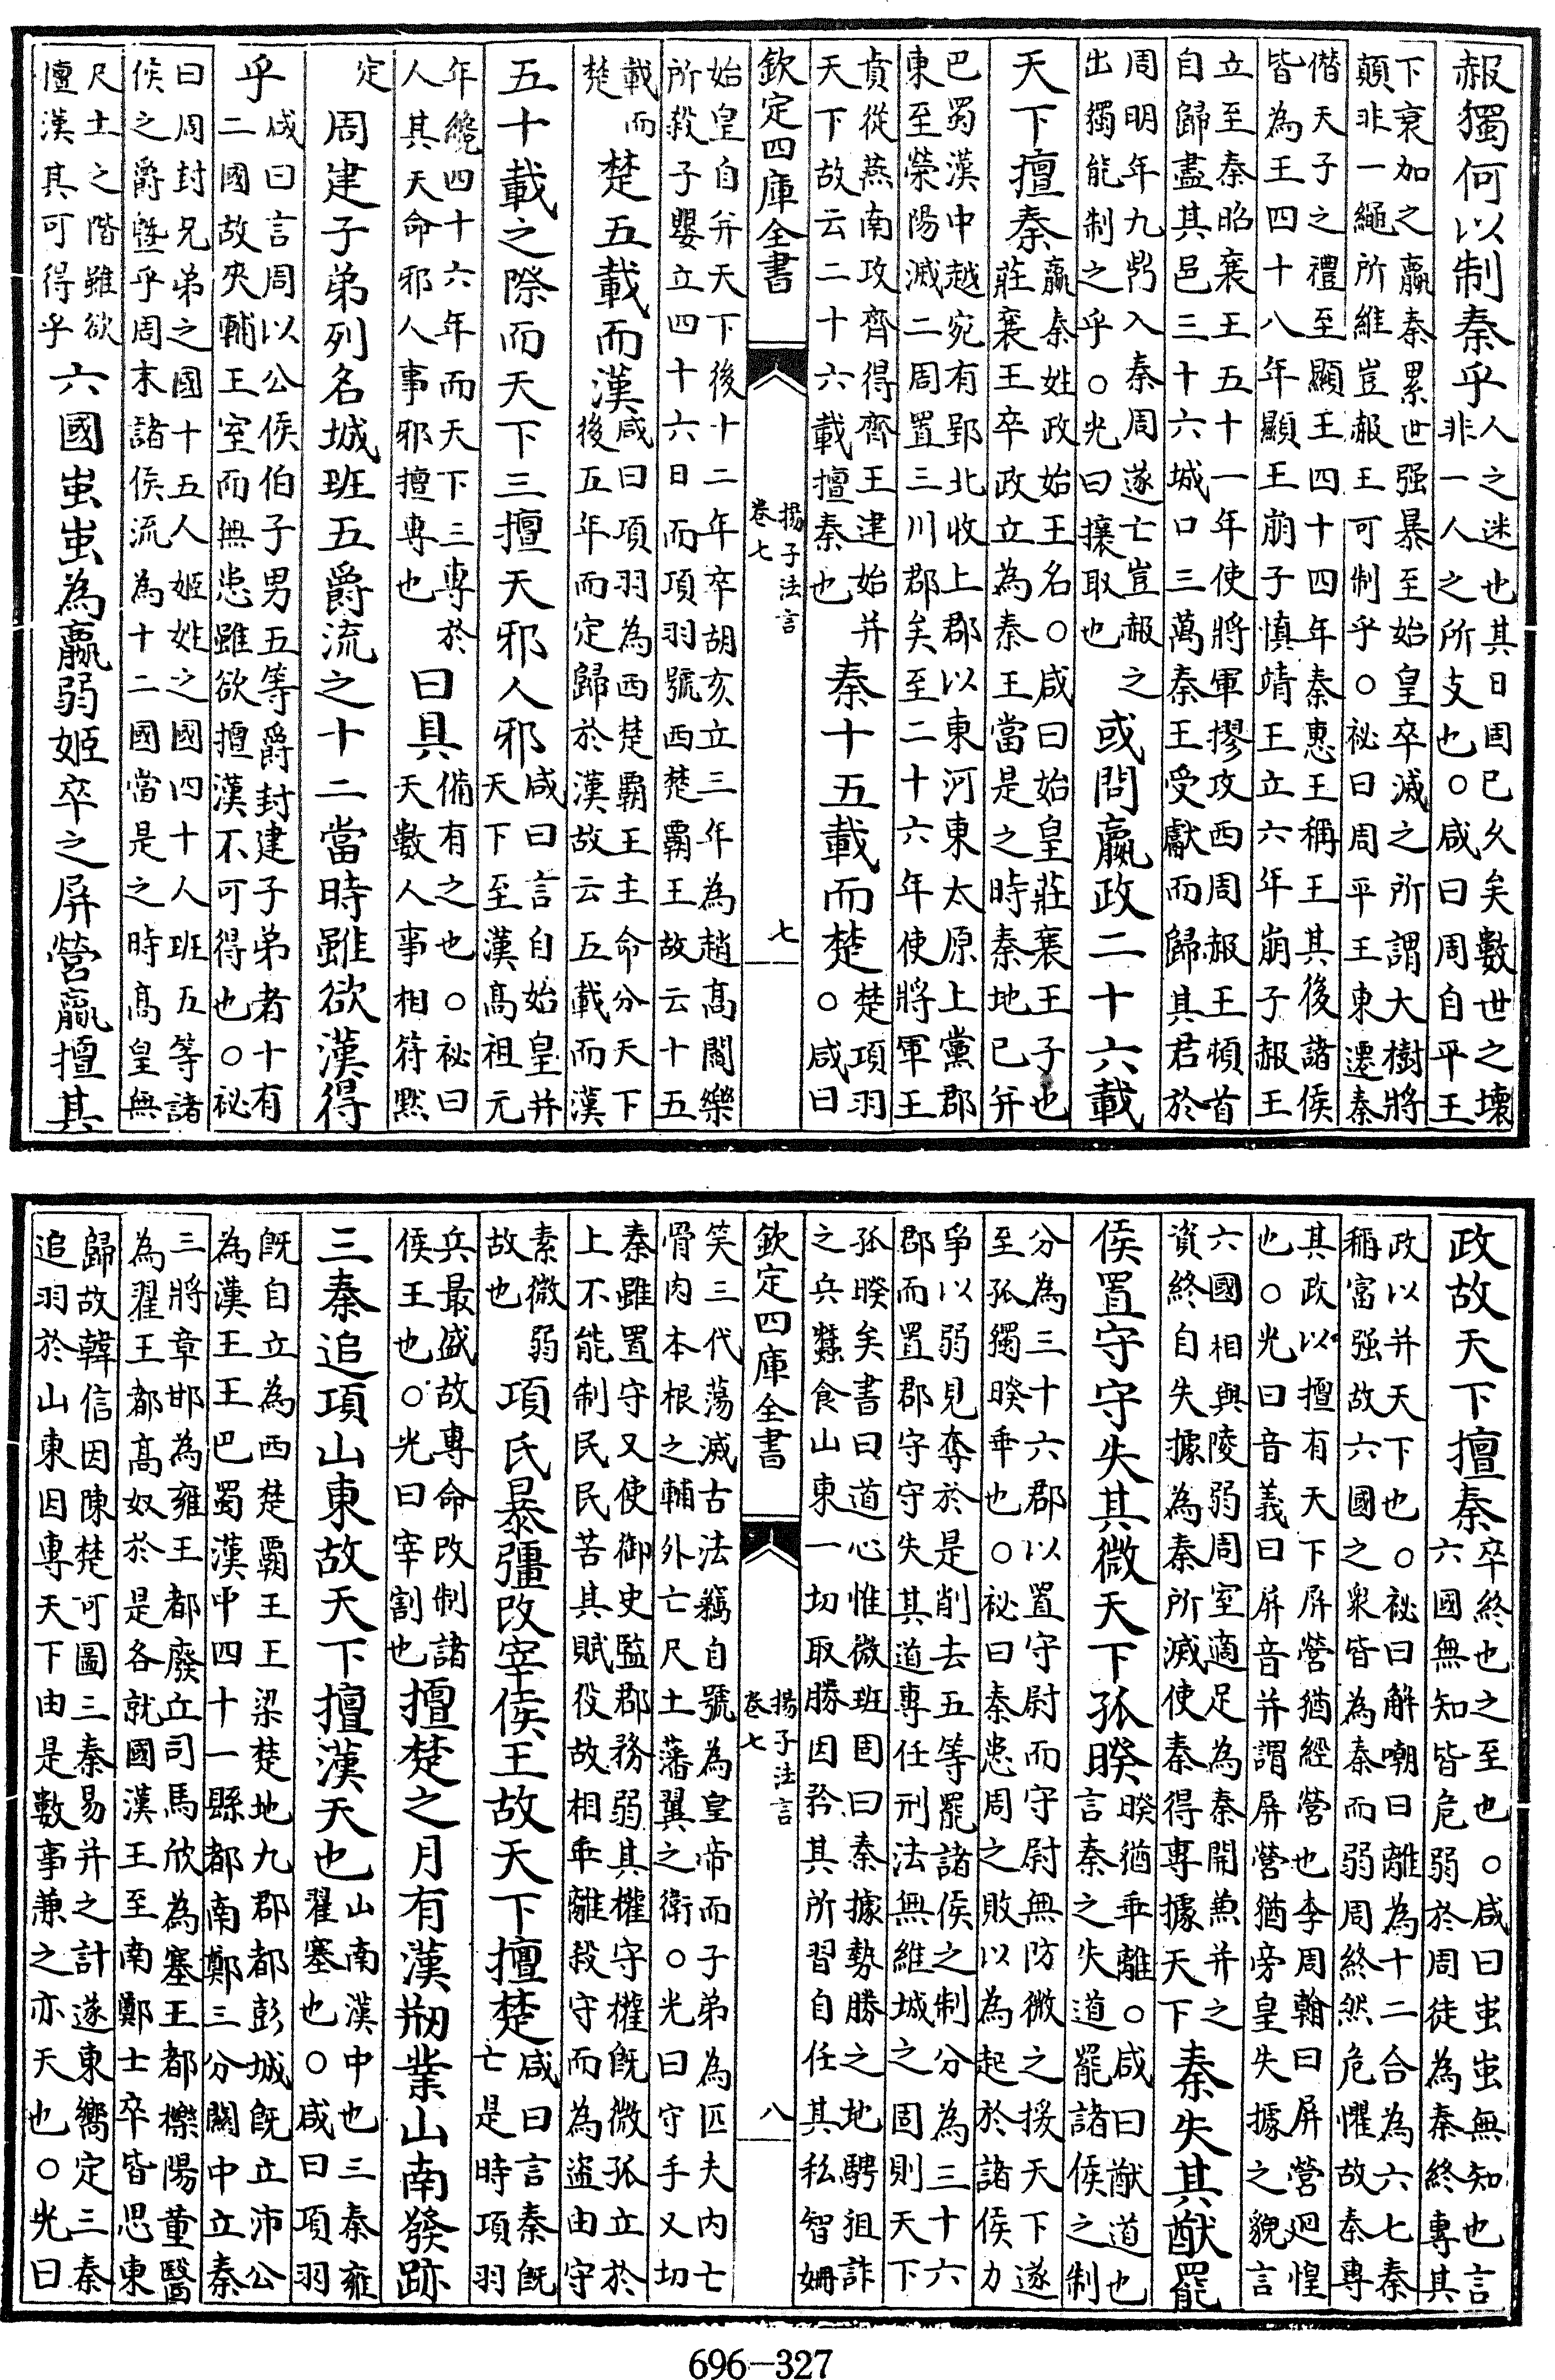 赧獨何以制秦乎人之迷也其日固已久矣數世之壞
非一人之所支也○咸曰周自平王
下衰加之嬴秦累世强暴至始皇卒滅之所謂大樹將
顛非一繩所維豈赧王可制乎○祕曰周平王東遷秦
僭天子之禮至顯王四十四年秦惠王稱王其後諸侯
皆為王四十八年顯王崩子慎靖王立六年崩子赧王
立至秦昭襄王五十一年使將軍摎攻西周赧王頓首
自歸盡其邑三十六城口三萬秦王受獻而歸其君於
周明年九鼎入秦周遂亡豈赧之
出獨能制之乎○光曰攘取也
或問嬴政二十六載
天下擅秦嬴秦姓政始王名○咸曰始皇莊襄王子也
莊襄王卒政立為秦王當是之時秦地已并
巴蜀漢中越宛有郢北收上郡以東河東太原上黨郡
東至滎陽滅二周置三川郡矣至二十六年使將軍王
賁從燕南攻齊得齊王建始并
天下故云二十六載擅秦也
秦十五載而楚楚項羽
○咸曰
欽定四庫全書
揚子法言
卷七
七
始皇自并天下後十二年卒胡亥立三年為趙高閻樂
所殺子嬰立四十六日而項羽號西楚霸王故云十五
載而
楚
楚五載而漢咸曰項羽為西楚霸王主命分天下
後五年而定歸於漢故云五載而漢
五十載之際而天下三擅天邪人邪咸曰言自始皇并
天下至漢高祖元
年纔四十六年而天下三專於
人其天命邪人事邪擅專也
曰具備有之也○祕曰
天數人事相符黙
定
周建子弟列名城班五爵流之十二當時雖欲漢得
乎咸曰言周以公侯伯子男五等爵封建子弟者十有
二國故夾輔王室而無患雖欲擅漢不可得也○祕
曰周封兄弟之國十五人姬姓之國四十人班五等諸
侯之爵曁乎周末諸侯流為十二國當是之時高皇無
尺土之階雖欲
擅漢其可得乎
六國蚩蚩為嬴弱姬卒之屏營嬴擅其
政故天下擅秦卒終也之至也○咸曰蚩蚩無知也言
六國無知皆危弱於周徒為秦終專其
政以并天下也○祕曰解嘲曰離為十二合為六七秦
稱富强故六國之衆皆為秦而弱周終然危懼故秦專
其政以擅有天下屏營猶經營也李周翰曰屏營迴惶
也○光曰音義曰屏音并謂屏營猶旁皇失據之貌言
六國相與陵弱周室適足為秦開兼并之
資終自失據為秦所滅使秦得專據天下
秦失其猷罷
侯置守守失其微天下孤睽睽猶乖離○咸曰猷道也
言秦之失道罷諸侯之制
分為三十六郡以置守尉而守尉無防微之援天下遂
至孤獨睽乖也○祕曰秦患周之敗以為起於諸侯力
爭以弱見奪於是削去五等罷諸侯之制分為三十六
郡而置郡守守失其道專任刑法無維城之固則天下
孤睽矣書曰道心惟微班固曰秦據勢勝之地騁狙詐
之兵蠶食山東一切取勝因矜其所習自任其私智姍
欽定四庫全書
揚子法言
卷七
八
笑三代蕩滅古法竊自號為皇帝而子弟為匹夫内亡
骨肉本根之輔外亡尺土藩翼之衛○光曰守手又切
秦雖置守又使御史監郡務弱其權守權既微孤立於
上不能制民民苦其賦役故相乖離殺守而為盜由守
素微弱
故也
項氏暴彊改宰侯王故天下擅楚咸曰言秦既
亡是時項羽
兵最盛故專命改制諸
侯王也○光曰宰割也
擅楚之月有漢剏業山南發跡
三秦追項山東故天下擅漢天也山南漢中也三秦雍
翟塞也○咸曰項羽
既自立為西楚霸王王梁楚地九郡都彭城既立沛公
為漢王王巴蜀漢中四十一縣都南鄭三分關中立秦
三將章邯為雍王都廢丘司馬欣為塞王都櫟陽董醫
為翟王都高奴於是各就國漢王至南鄭士卒皆思東
歸故韓信因陳楚可圖三秦易并之計遂東嚮定三秦
追羽於山東因專天下由是數事兼之亦天也○光曰
696—327